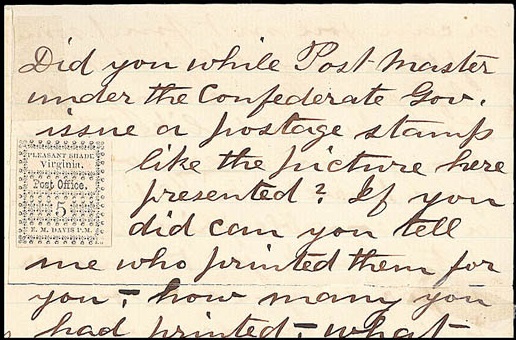 Did you while Post Master
under the Confederate Gov.
issue a postage stamp
like the picture here
presented? If you
did can you tell
me who printed them for
you – how many you
had printed – what
PLEASANT SHADE
Virginia.
Post Office.
5
R. E. DAVIS P.M.